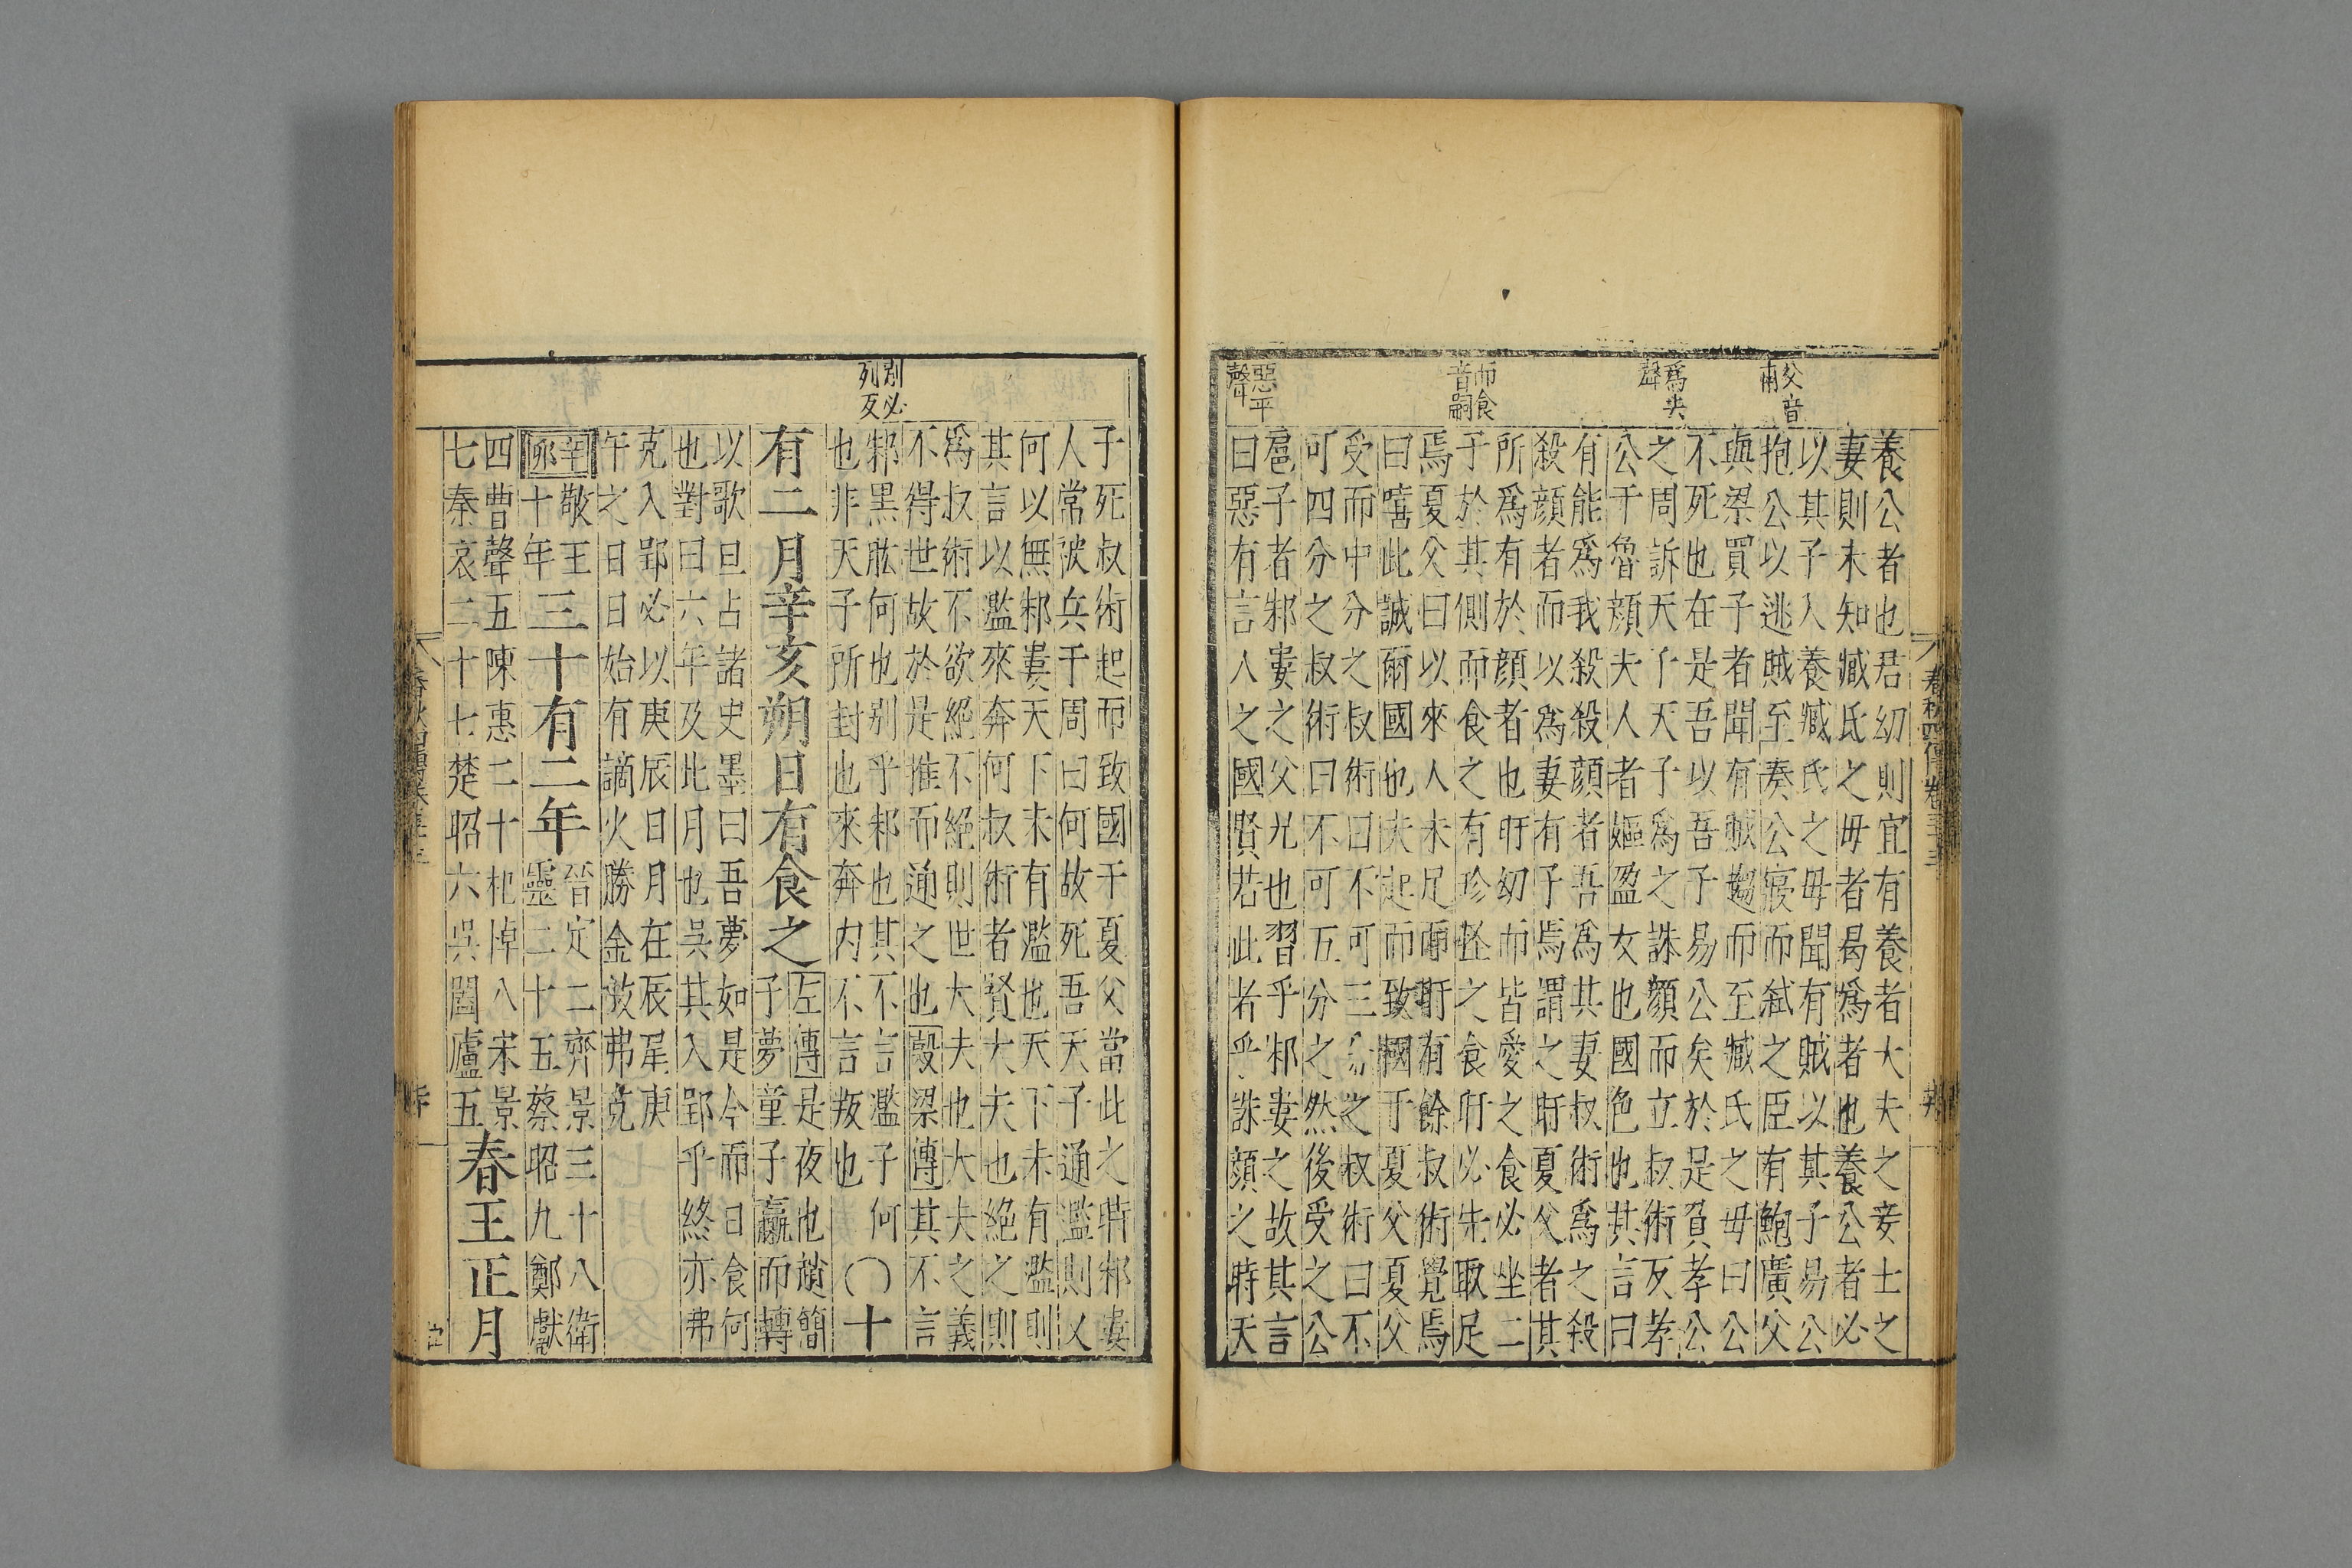 父音
甫
爲去
聲
而食
音嗣
惡平
聲
養公者也君幼則宜有養者大夫之妾士之
妻則未知臧氏之母者曷爲者也養公者必
以其子入養臧氏之母聞有賊以其子易公
抱公以逃賊至奏公寢而弑之臣有鮑廣父
與梁買子者聞有賊趨而至臧氏之母曰公
不死也在是吾以吾子易公矣於是負孝公
之周訴天子天子爲之誅顔而立叔術反孝
公于魯顔夫人者嫗盈女也國色也其言曰
有能爲我殺殺顔者吾爲其妻叔術爲之殺
殺顔者而以爲妻有子焉謂之盱夏父者其
所爲有於顔者也盱幼而皆愛之食必坐二
子於其側而食之有珍怪之食盱必先取足
焉夏父曰以來人未足而盱有餘叔術覺焉
曰嘻此誠爾國也夫起而致國于夏父夏父
受而中分之叔術曰不可三分之叔術曰不
可四分之叔術曰不可五分之然後受之公
扈子者邾婁之父兄也習乎邾婁之故其言
曰惡有言人之國賢若此者乎誅顔之時天
别必
列反
子死叔術起而致國于夏父當此之時邾婁
人常被兵于周曰何故死吾天子通濫則文
何以無邾婁天下未有濫也天下未有濫則
其言以濫來奔何叔術者賢大夫也絕之則
爲叔術不欲絕不絕則世大夫也大夫之義
不得世故於是推而通之也穀梁傳其不言
邾黑肱何也别乎邾也其不言濫子何
也非天子所封也來奔内不言叛也
○十
有二月辛亥朔日有食之
左傳是夜也趙簡
子夢童子臝而轉
以歌旦占諸史墨曰吾夢如是今而日食何
也對曰六年及此月也吳其入郢乎終亦弗
克入郢必以庚辰日月在辰尾庚
午之日日始有謫火勝金故弗克
辛卯
敬王
十年
三十有二年
晉定二齊景三十八衛
靈二十五蔡昭九鄭獻
四曹聲五陳惠二十杞悼八宋景
七秦哀二十七楚昭六吳闔廬五
春王正月